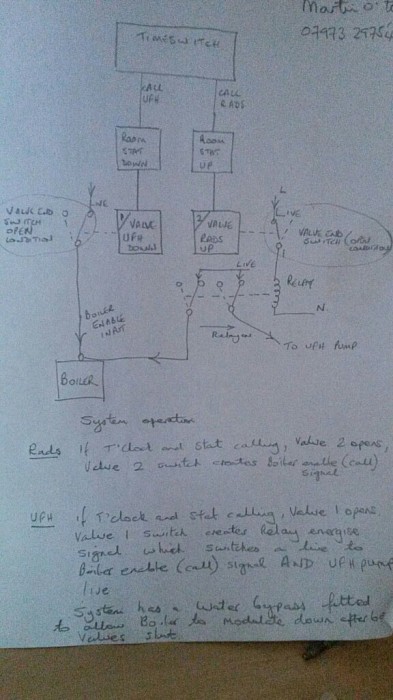 Martin O'
TIMESWITCH
CALL
UFH
CALL
RADS
ROOM
STAT
DOWN
ROOM
STAT
UP
LIVE
VALVE END
SWITCH
OPEN
CONDITION
1
VALVE
UFH
DOWN
2
VALVE
RADS
UP
L
LIVE
VALVE END
SWITCH (OPEN
CONDITION)
LIVE
RELAY
N.
BOILER
ENABLE
INPUT
Relay on
TO UFH PUMP
BOILER
System operation
Rads If T'clock and Stat calling, Valve 2 opens,
Valve 2 switch creates Boiler enable (call)
signal
UFH If T'clock and Stat calling, Valve 1 opens.
Valve 1 switch creates Relay energise
signal which switches a live to
Boiler enable (call) signal AND UFH pump
live
System has a water bypass fitted
to allow Boiler to modulate down after
valves shut